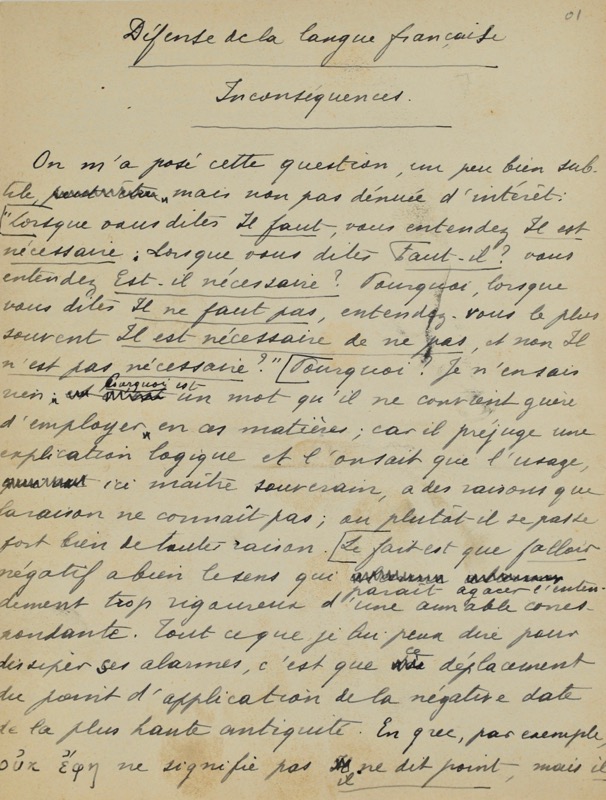 01
Défense de la langue française
Inconséquences.
On m'a posé cette question, un peu bien sub-
tile, mais non pas dénuée d'intérêt :
"Lorsque vous dites Il faut, vous entendez Il est
nécessaire ; lorsque vous dites Faut-il ? vous
entendez Est-il nécessaire ? Pourquoi, lorsque
vous dites Il ne faut pas, entendez-vous le plus
souvent Il est nécessaire de ne pas, et non Il
n'est pas nécessaire ?" Pourquoi ? Je n'en sais
rien ; Pourquoi est un mot qu'il ne convient guère
d'employer, en ces matières ; car il préjuge une
explication logique et l'on sait que l'usage,
ici maître souverain, a des raisons que
la raison ne connaît pas ; ou plutôt il se passe
fort bien de toute raison. Le fait est que falloir
négatif a bien le sens qui paraît agacer l'enten-
dement trop rigoureux d'une aimable corres-
pondante. Tout ce que je lui peux dire pour
dissiper ses alarmes, c'est que ce déplacement
du point d'application de la négative date
de la plus haute antiquité. En grec, par exemple,
οὐκ ἔφη ne signifie pas il ne dit point, mais il